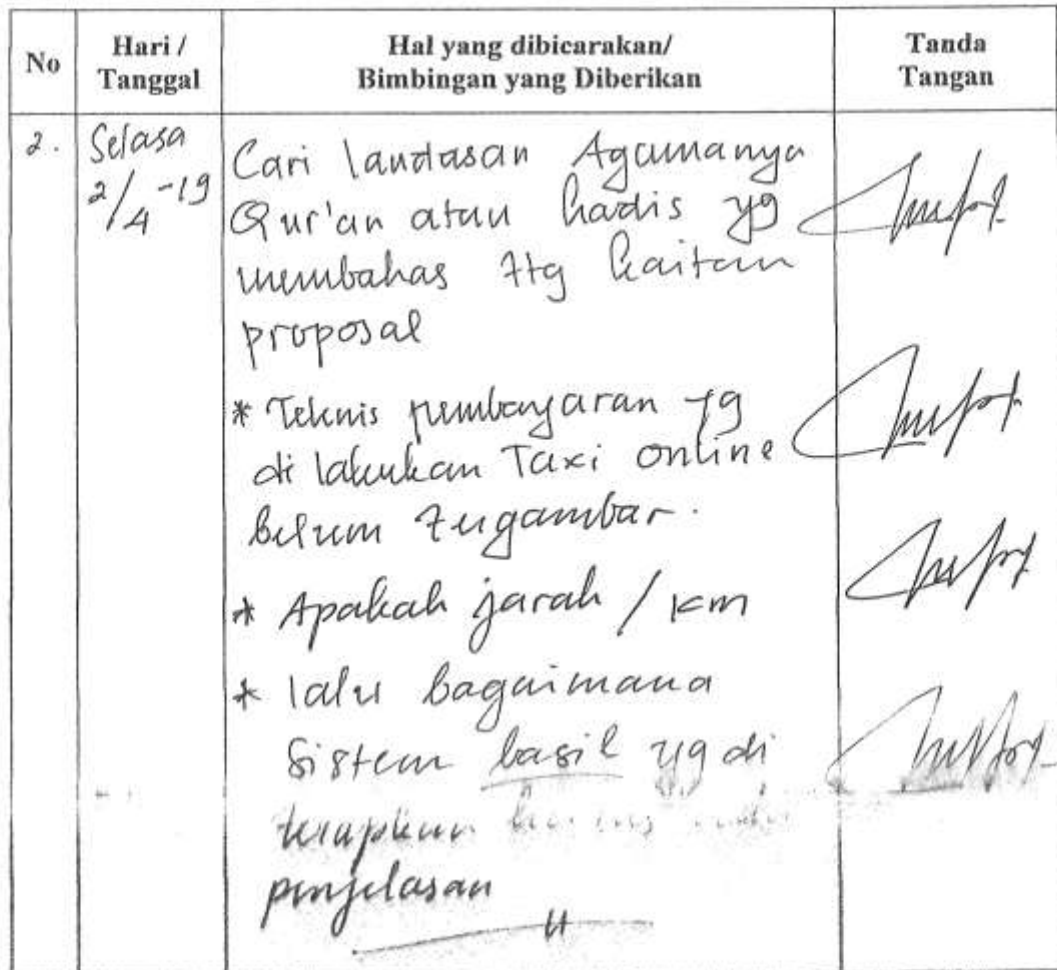 No
Hari /
Tanggal
Hal yang dibicarakan/
Bimbingan yang Diberikan
Tanda
Tangan
2.
Selasa
2/4-19
Cari landasan Agamanya
Qur'an atau hadis yg
membahas ttg kaitan
proposal
* Teknis pembayaran yg
di lakukan Taxi online
belum tergambar.
* Apakah jarak / km
* lalu bagaimana
sistem basil yg di
terapkan
penjelasan